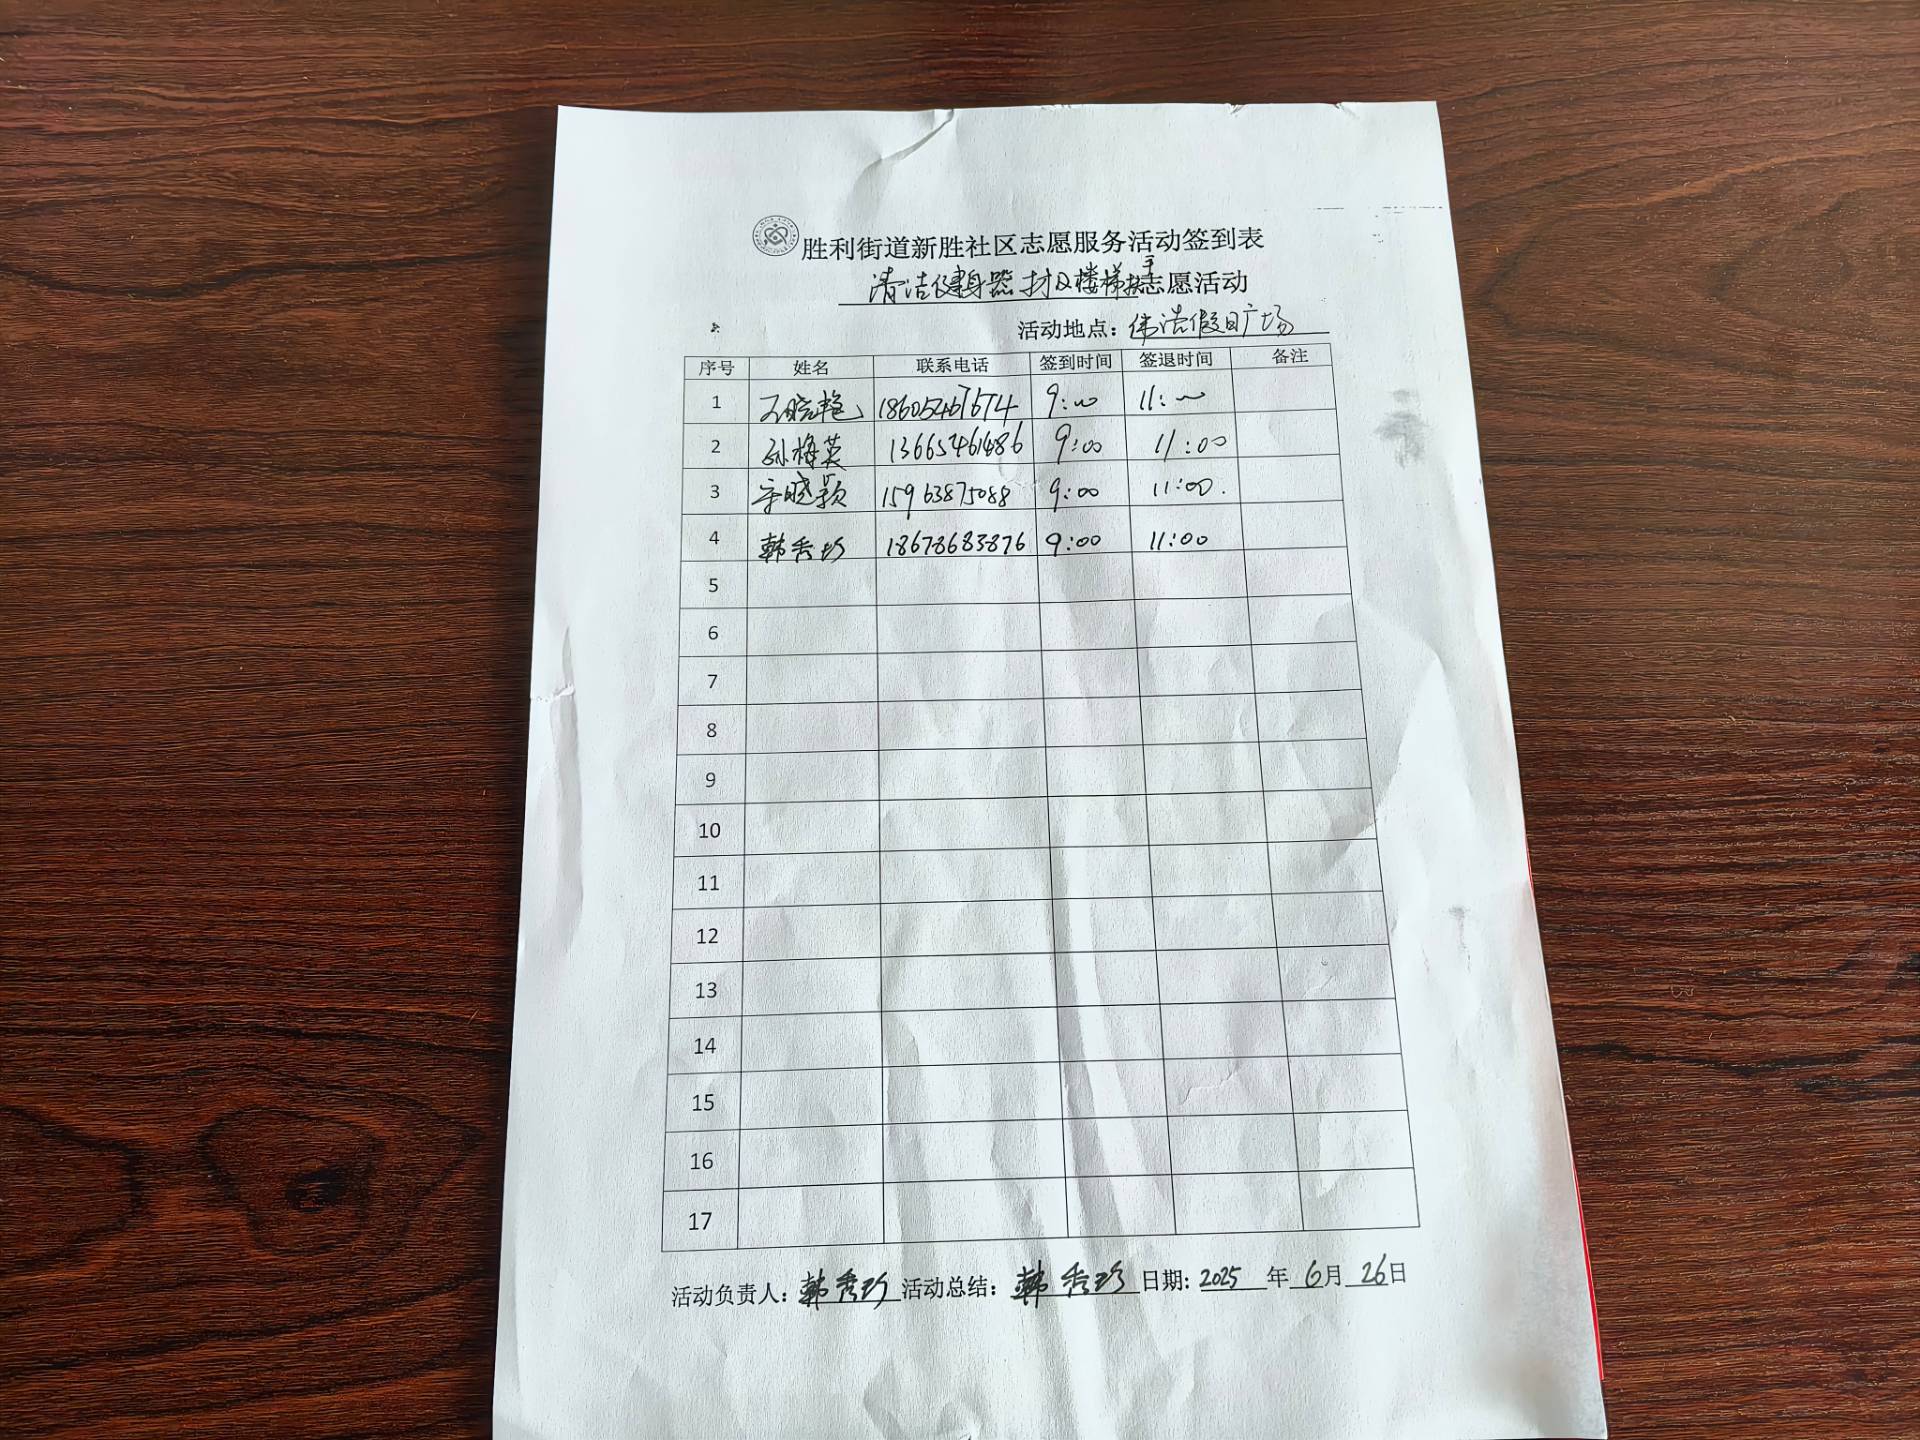 胜利街道新胜社区志愿服务活动签到表
清洁健身器材及楼梯扶手志愿活动
活动地点：伟浩假日广场
序号 姓名 联系电话 签到时间 签退时间 备注
1 晓艳 18605467674 9:00 11:00
2 孙梅英 13665461486 9:00 11:00
3 晓颖 15963875088 9:00 11:00.
4 韩秀珍 18678683876 9:00 11:00
5
6
7
8
9
10
11
12
13
14
15
16
17
活动负责人：韩秀珍 活动总结：韩秀珍 日期：2025 年 6月 26日